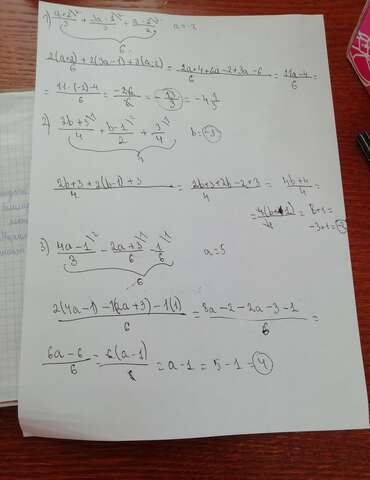 1) a+2/3 + 3a-1/3 + a-2/2 a=-2
6
2(a+2)+2(3a-1)+3(a-2)/6 = 2a+4+6a-2+3a-6/6 = 11a-4/6 =
= 11·(-2)-4/6 = -26/6 = -13/3 = -4 1/3
2) 2b+3/4 + b-1/2 + 3/4 b=-3
4
2b+3+2(b-1)+3/4 = 2b+3+2b-2+3/4 = 4b+4/4 =
= 4(b+1)/4 = b+1 =
-3+1=
3) 4a-1/3 - 2a+3/6 - 1/6 a=5
6
2(4a-1)-1(2a+3)-1(1)/6 = 8a-2-2a-3-1/6 =
6a-6/6 = 6(a-1)/6 = a-1 = 5-1 = 4